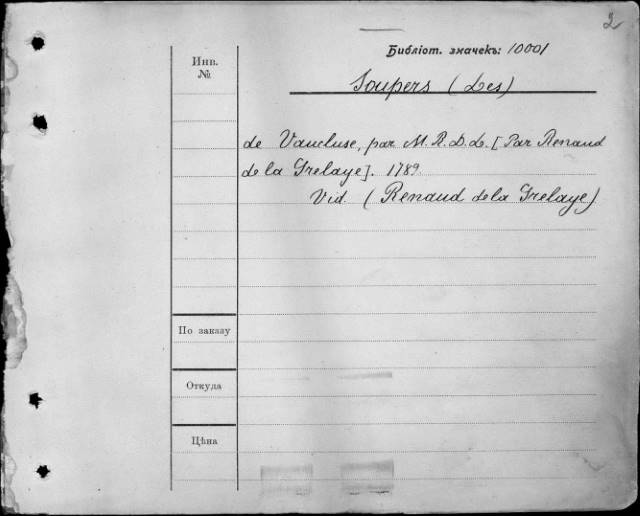 2
Библіот. значекъ: 10001
Инв.
№
Soupers (Les)
de Vaucluse, par M. R. D. L. [Par Renaud
de la Grelaye]. 1789.
Vid. (Renaud de la Grelaye)
По заказу
Откуда
Цѣна